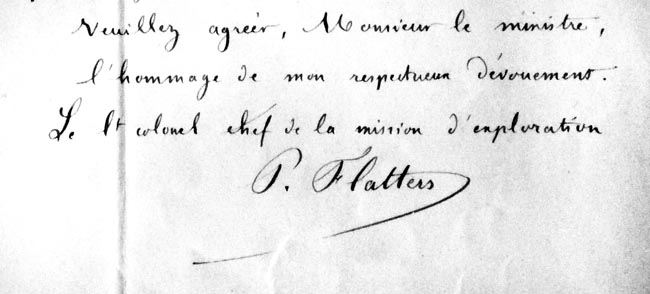 Veuillez agréer, Monsieur le ministre,
l'hommage de mon respectueux dévouement.
Le lt colonel chef de la mission d'exploration
P. Flatters